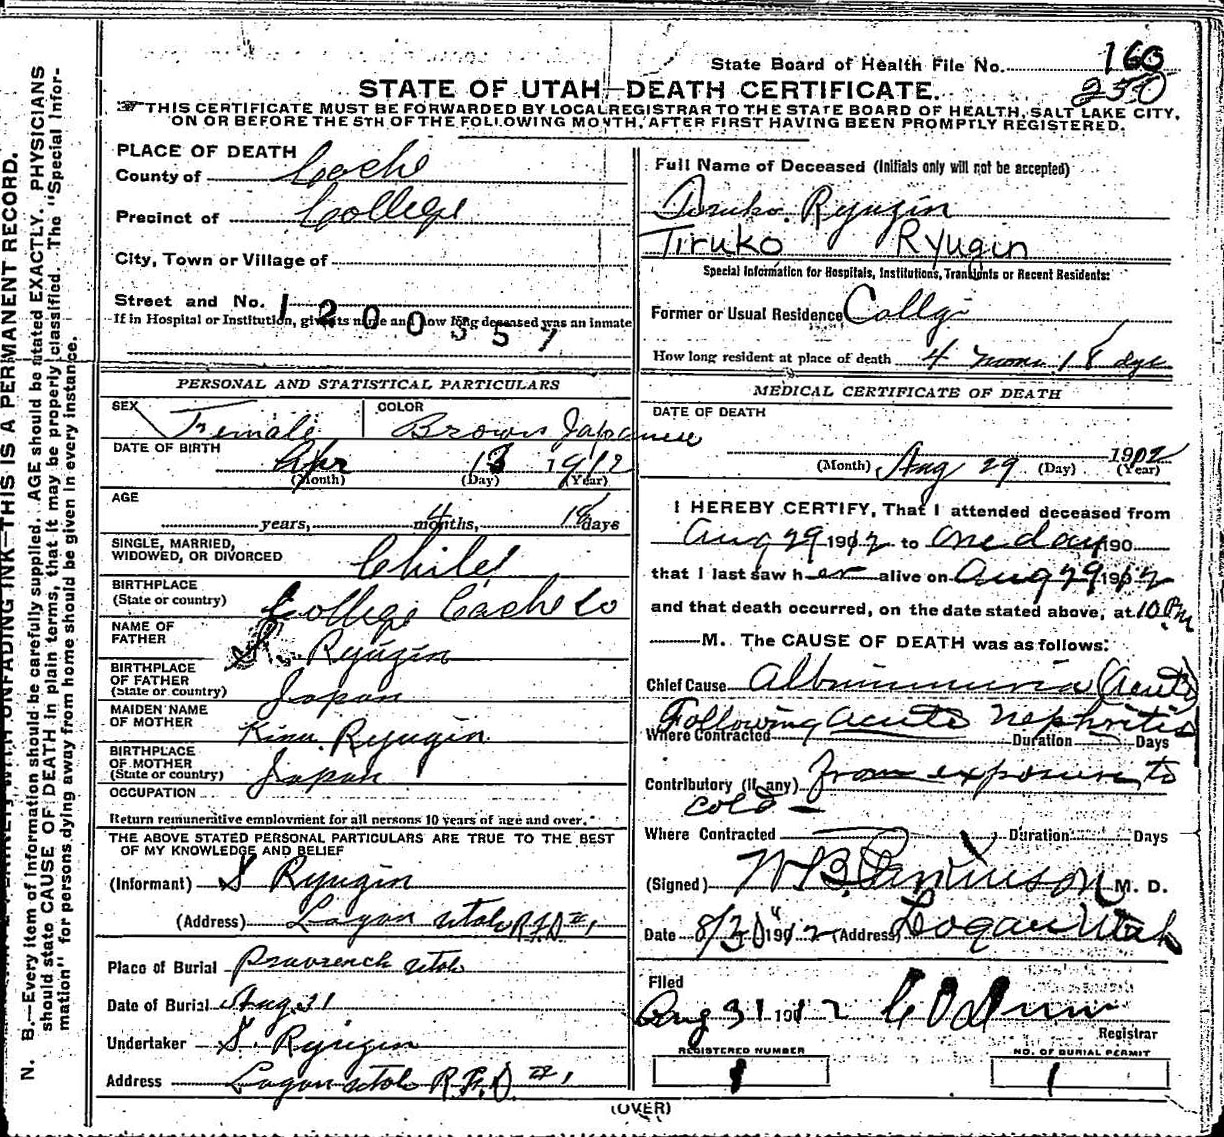 State Board of Health File No. 160
STATE OF UTAH—DEATH CERTIFICATE. 230
THIS CERTIFICATE MUST BE FORWARDED BY LOCAL REGISTRAR TO THE STATE BOARD OF HEALTH, SALT LAKE CITY,
ON OR BEFORE THE 5TH OF THE FOLLOWING MONTH, AFTER FIRST HAVING BEEN PROMPTLY REGISTERED.
N. B.—Every item of information should be carefully supplied. AGE should be stated EXACTLY. PHYSICIANS
should state CAUSE OF DEATH in plain terms, that it may be properly classified. The "Special Infor-
mation" for persons dying away from home should be given in every instance.
UNFADING INK—THIS IS A PERMANENT RECORD.
PLACE OF DEATH
County of Cache
Precinct of College
City, Town or Village of
Street and No.
1200357
If in Hospital or Institution, give its name and how long deceased was an inmate
PERSONAL AND STATISTICAL PARTICULARS
SEX Female COLOR Brown Japanese
DATE OF BIRTH Apr 13 1912
(Month) (Day) (Year)
AGE
years, 4 months, 18 days
SINGLE, MARRIED,
WIDOWED, OR DIVORCED Child
BIRTHPLACE
(State or country) College Cache Co
NAME OF
FATHER S. Ryugin
BIRTHPLACE
OF FATHER
(State or country) Japan
MAIDEN NAME
OF MOTHER Kinu Ryugin
BIRTHPLACE
OF MOTHER
(State or country) Japan
OCCUPATION
Return remunerative employment for all persons 10 years of age and over.
THE ABOVE STATED PERSONAL PARTICULARS ARE TRUE TO THE BEST
OF MY KNOWLEDGE AND BELIEF
(Informant) S Ryugin
(Address) Logan Utah R.F.D # 1
Place of Burial Utah
Date of Burial Aug. 31
Undertaker S. Ryugin
Address Logan Utah R.F.D # 1
Full Name of Deceased (Initials only will not be accepted)
Ryugin
Tiruko Ryugin
Special Information for Hospitals, Institutions, Transients or Recent Residents:
Former or Usual Residence College
How long resident at place of death 4 mons. 18 dys
MEDICAL CERTIFICATE OF DEATH
DATE OF DEATH
1912
(Month) Aug 29 (Day) (Year)
I HEREBY CERTIFY, That I attended deceased from
Aug 29 1912 to one day 190
that I last saw her alive on Aug 29 1912
and that death occurred, on the date stated above, at 10 P.M
M. The CAUSE OF DEATH was as follows:
Chief Cause Albuminuria (acute)
Following acute Nephritis
Where Contracted Duration Days
Contributory (if any) from exposure to
cold
Where Contracted Duration Days
(Signed) W B Parkinson M. D.
Date 8/30 1912 (Address) Logan Utah
Filed
Aug 31 1912
Registrar
REGISTERED NUMBER NO. OF BURIAL PERMIT
1 1
(OVER)